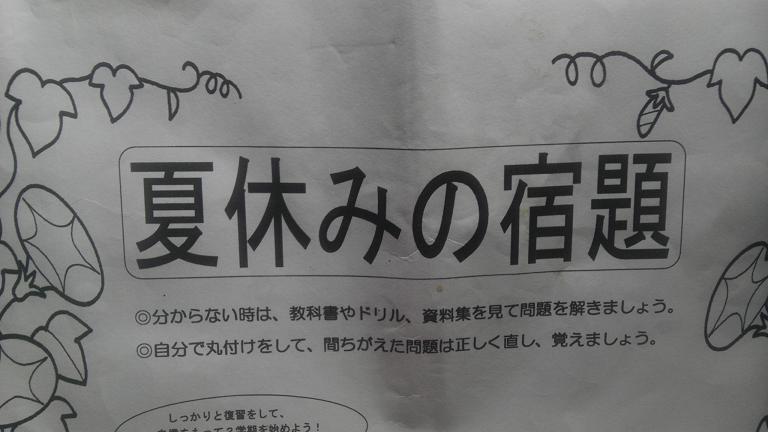 夏休みの宿題
◎分からない時は、教科書やドリル、資料集を見て問題を解きましょう。
◎自分で丸付けをして、間ちがえた問題は正しく直し、覚えましょう。
しっかりと復習をして、
自信をもって2学期を始めよう！